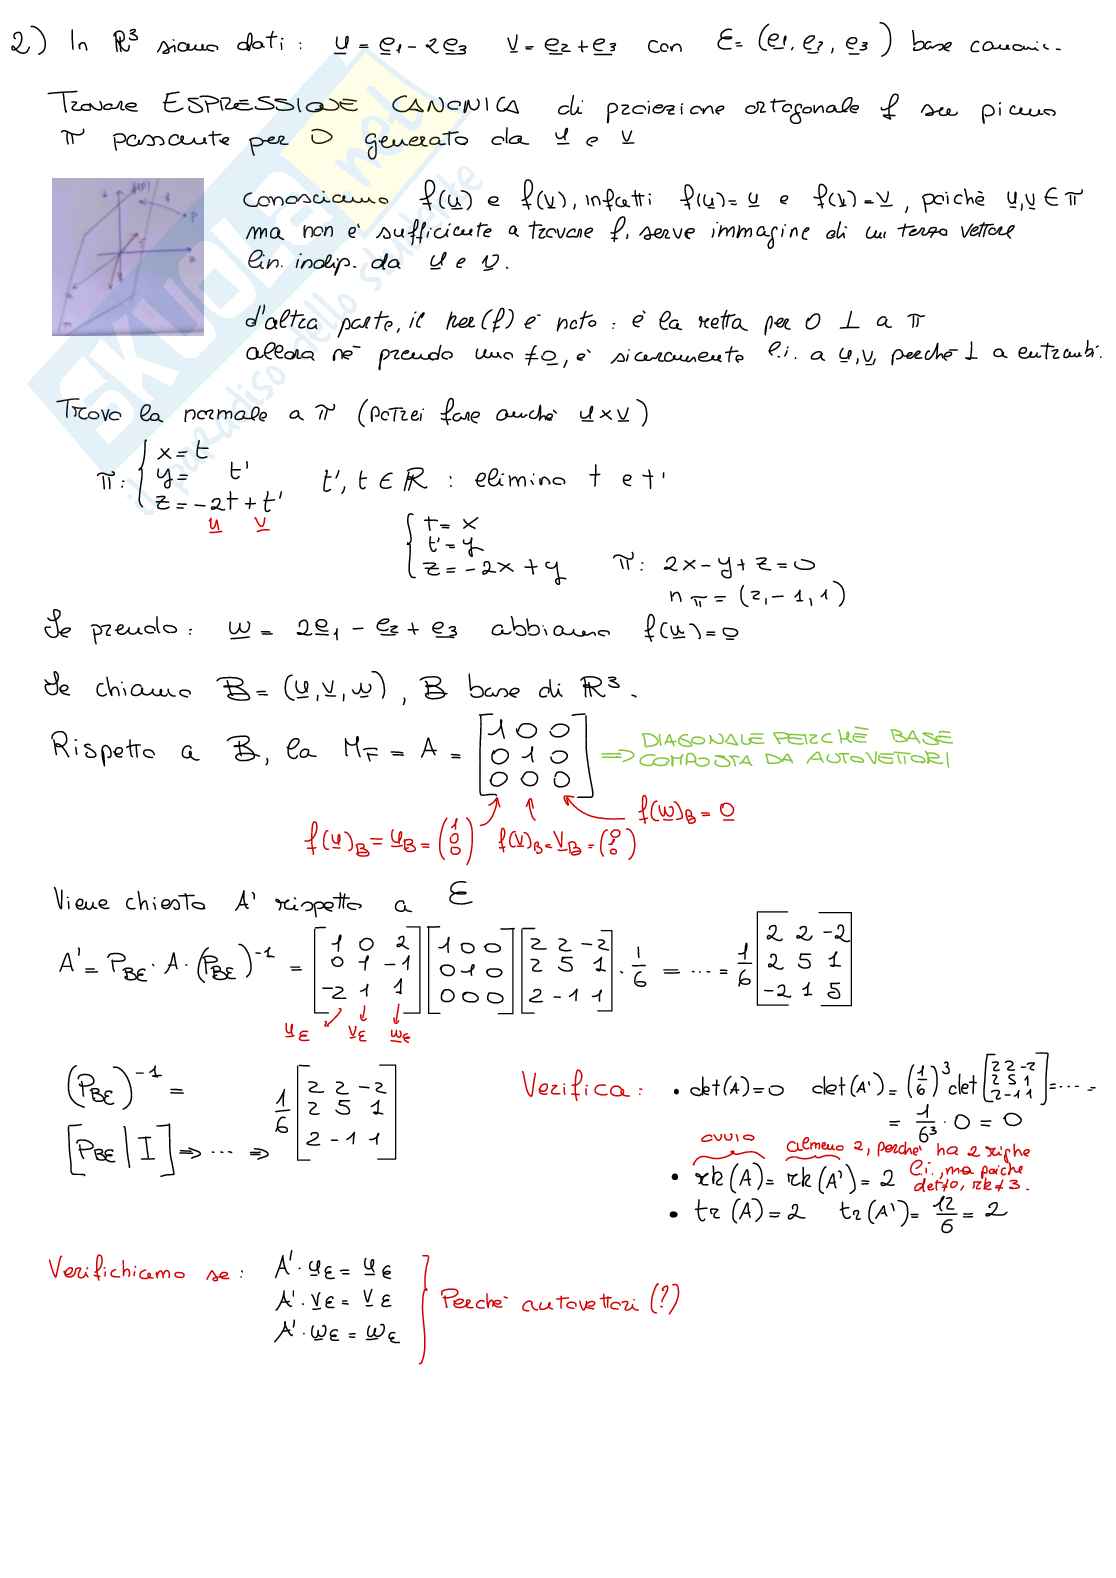 2) In ℝ³ siano dati: u = e1 - 2e3 v = e2 + e3 con ℰ = (e1, e2, e3) base canonic.
Trovare ESPRESSIONE CANONICA di proiezione ortogonale f su piano
π passante per O generato da u e v
conosciamo f(u) e f(v), infatti f(u) = u e f(v) = v, poichè u,v ∈ π
ma non è sufficiente a trovare f, serve immagine di un terzo vettore
lin. indip. da u e v.
d'altra parte, il ker(f) è noto: è la retta per O ⊥ a π
allora ne prendo uno ≠ 0, è sicuramente l.i. a u,v, perchè ⊥ a entrambi.
Trovo la normale a π (potrei fare anche u×v)
π: { x = t
y = t'
z = -2t + t'
u v
t', t ∈ ℝ : elimino t e t'
{ t = x
t' = y
z = -2x + y
π: 2x - y + z = 0
nπ = (2, -1, 1)
Se prendo: w = 2e1 - e2 + e3 abbiamo f(w) = 0
Se chiamo B = (u,v,w), B base di ℝ³.
Rispetto a B, la MF = A = [1 0 0
0 1 0
0 0 0]
⇒ DIAGONALE PERCHÈ BASE
COMPOSTA DA AUTOVETTORI
f(u)B = uB = (1 0 0) f(v)B = vB = (0 1 0) f(w)B = 0
Viene chiesto A' rispetto a ℰ
A' = PBℰ · A · (PBℰ)⁻¹ = [1 0 2
0 1 -1
-2 1 1] [1 0 0
0 1 0
0 0 0] [2 2 -2
2 5 1
2 -1 1] · 1/6 = ... = 1/6 [2 2 -2
2 5 1
-2 1 5]
uℰ vℰ wℰ
(PBℰ)⁻¹ =
[PBℰ | I] ⇒ ... ⇒ 1/6 [2 2 -2
2 5 1
2 -1 1]
Verifica: • det(A) = 0 det(A') = (1/6)³ det [2 2 -2
2 5 1
2 -1 1] = ... =
= 1/6³ · 0 = 0
ovvio almeno 2, perchè ha 2 righe
l.i., ma poichè
det=0, rk≠3.
• rk(A) = rk(A') = 2
• tr(A) = 2 tr(A') = 12/6 = 2
Verifichiamo se: A' · uℰ = uℰ
A' · vℰ = vℰ
A' · wℰ = wℰ
Perchè autovettori (?)
SKUOLA.net
il paradiso dello studente